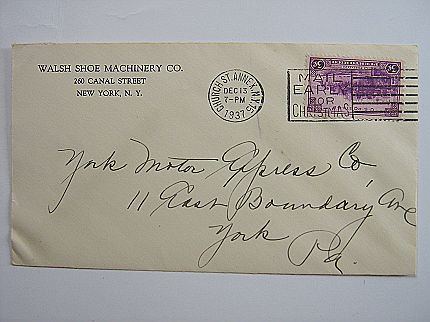 WALSH SHOE MACHINERY CO.
260 CANAL STREET
NEW YORK, N. Y.
CHURCH ST. ANNEX N.Y.
DEC 13
7-PM
1937
MAIL
EARLY
FOR
CHRISTMAS
3¢
3¢
York Motor Express Co,
11 East Boundary Ave
York
Pa.